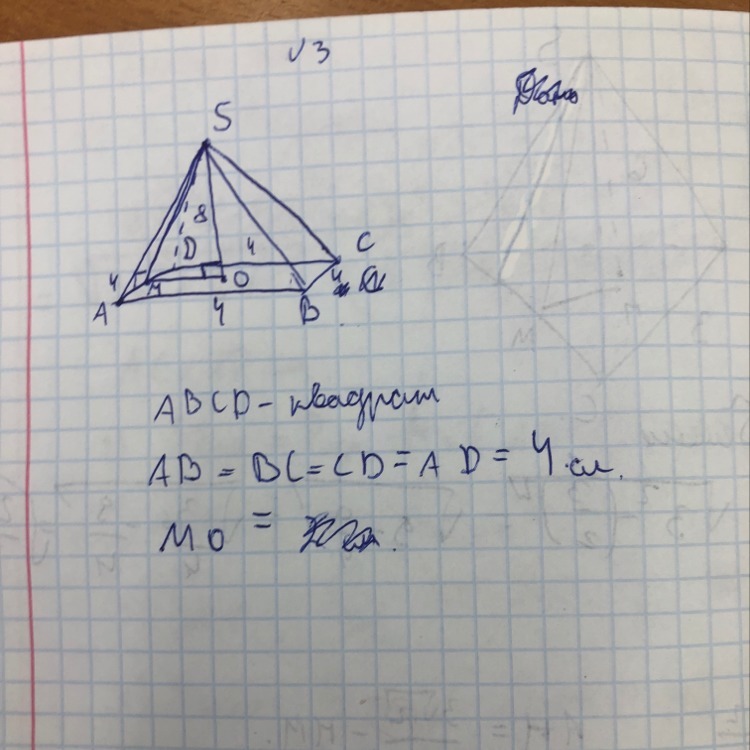 √3
S
8
D
4
C
4
M
O
4
A
4
B
ABCD - квадрат
AB = BC = CD = AD = 4 см.
MO =